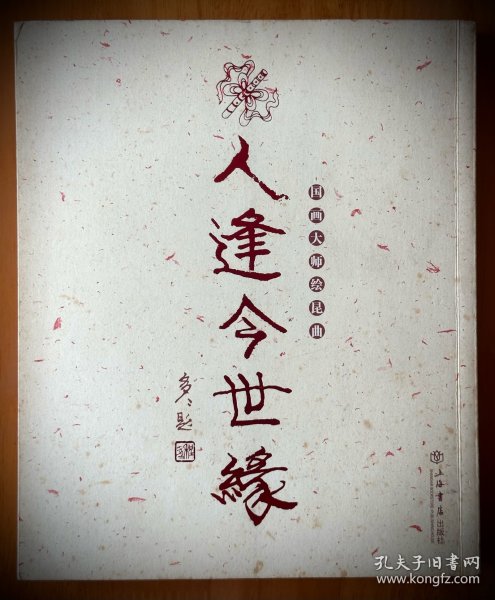 人逢今世緣
国画大师绘昆曲
上海書店出版社
孔夫子旧书网
www.kongfz.com